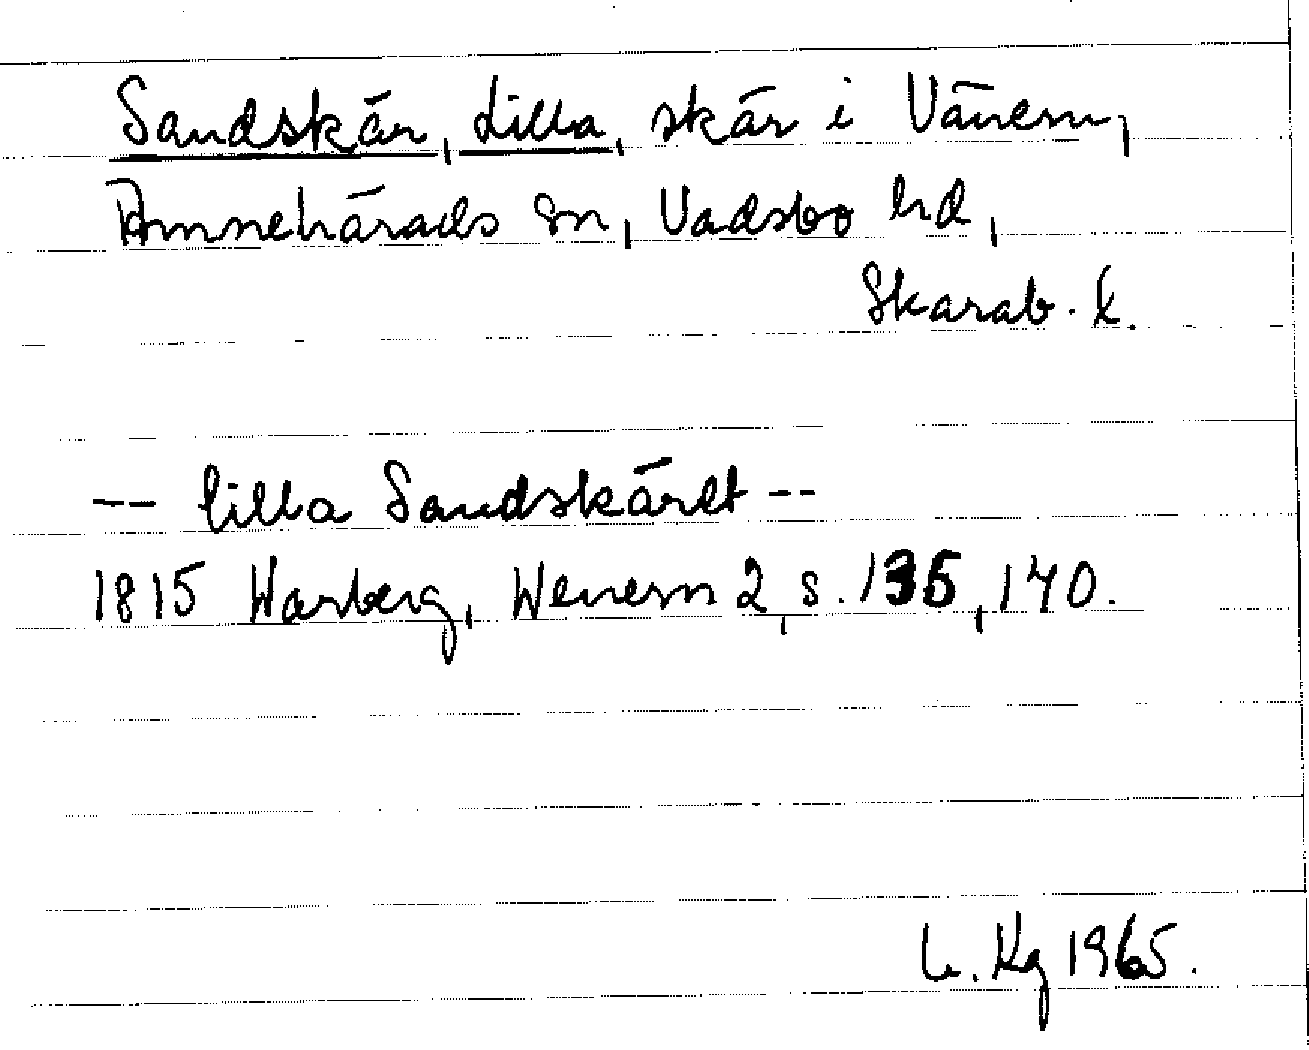 Sandskär, Lilla, skär i Vänern,
Amnehärads sn, Vadsbo hd,
Skarab. l.
-- lilla Sandskäret --
1815 Warberg, Wenern 2, s. 135, 140.
L. Kg 1965.